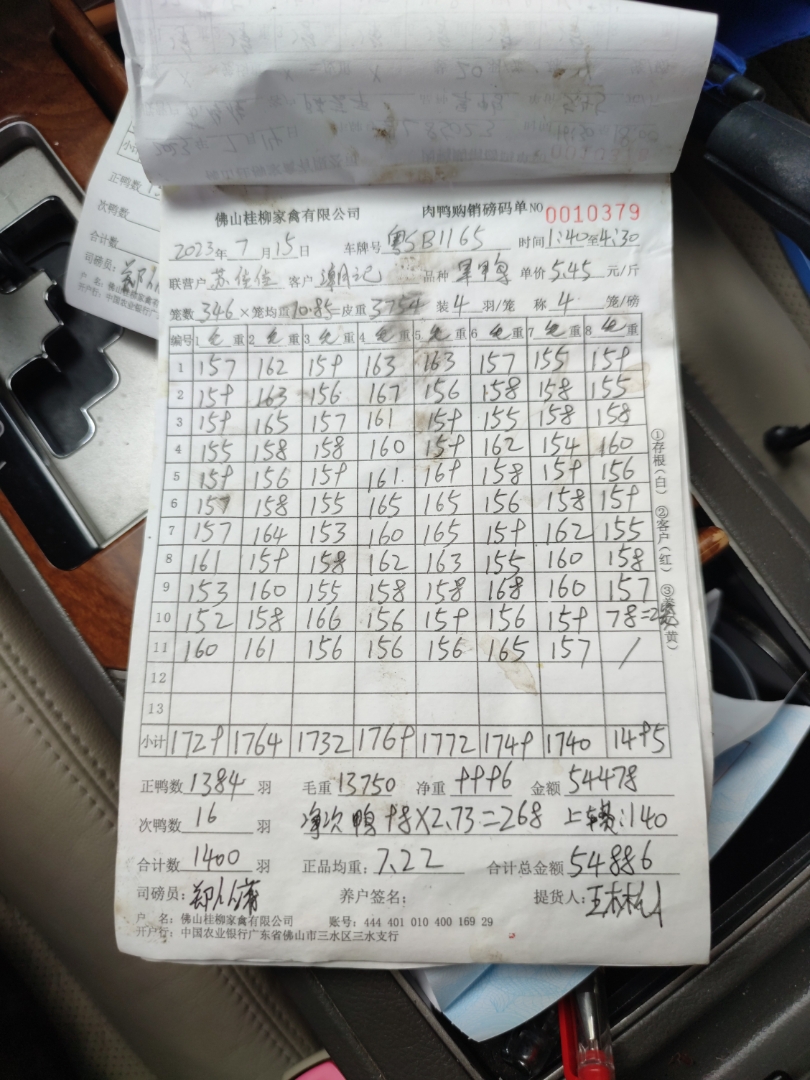 佛山桂柳家禽有限公司 肉鸭购销磅码单 NO 0010379
2023年 7月15日 车牌号 粤SB1165 时间 1:40至4:30
联营户 苏佳佳 客户 潮记 品种 单价 5.45 元/斤
笼数 346 ×笼均重 10.85 =皮重 3754 装 4 羽/笼 称 4 笼/磅
编号 1 毛重 2 毛重 3 毛重 4 毛重 5 毛重 6 毛重 7 毛重 8 毛重
1 157 162 159 163 163 157 155 159
2 159 163 156 167 156 158 158 155
3 159 165 157 161 159 155 158 158
4 155 158 158 160 159 162 154 160
5 159 156 159 161 169 158 159 156
6 157 158 155 165 165 156 158 159
7 157 164 153 160 165 159 162 155
8 161 159 158 162 163 155 160 158
9 153 160 155 158 158 168 160 157
10 152 158 166 156 159 156 159 78=2笼
11 160 161 156 156 156 165 157 /
12
13
小计 1729 1764 1732 1769 1772 1749 1740 1495
正鸭数 1384 羽 毛重 13750 净重 9996 金额 54478
次鸭数 16 羽 净次鸭 98×2.73=268 上车费:140
合计数 1400 羽 正品均重: 7.22 合计总金额 54886
司磅员: 养户签名: 提货人:
户 名: 佛山桂柳家禽有限公司 账号: 444 401 010 400 169 29
开户行: 中国农业银行广东省佛山市三水区三水支行
①存根(白) ②客户(红) ③ 黄)
正鸭数
次鸭数
合计数
司磅员:
户 名: 佛山桂柳家
开户行: 中国农业银行